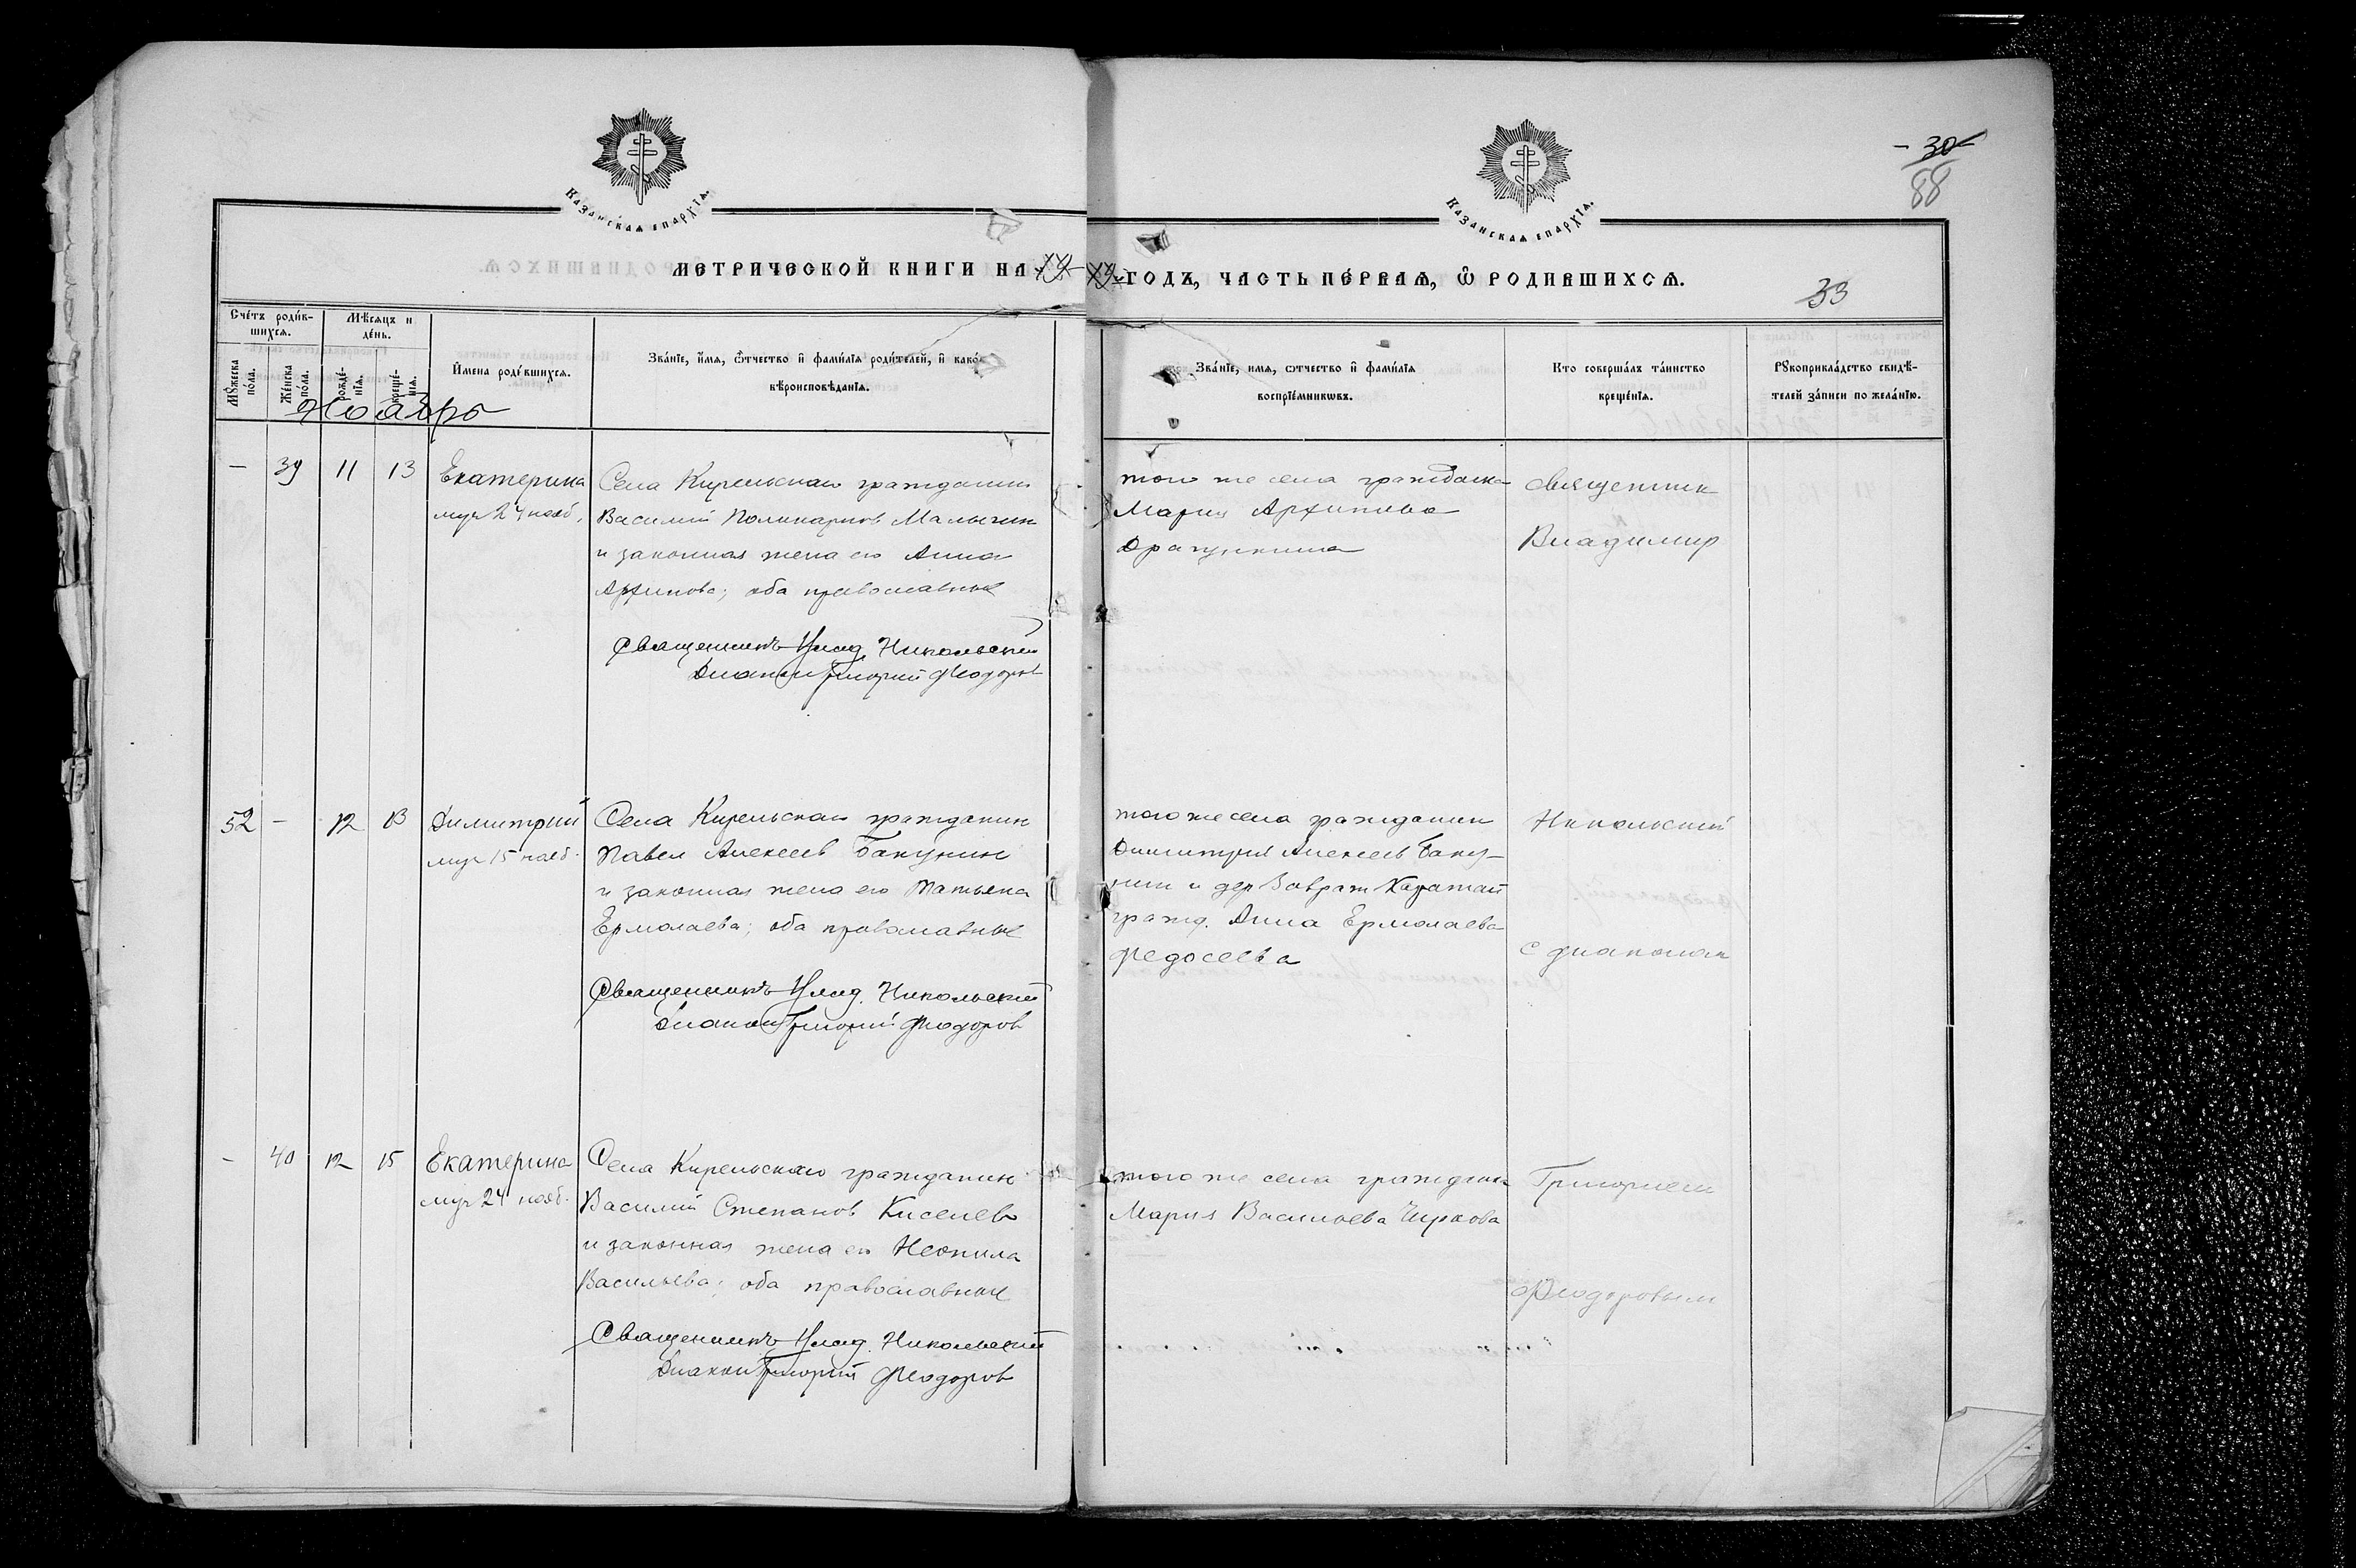 Казанская епархїя.
Казанская епархїя.
- 30 -
88
МЕТРИЧЕСКОЙ КНИГИ НА
ГОДЪ, ЧАСТЬ ПЕ́РВАЯ, Ѡ РОДИВШИХСЯ.
33
Сче́тъ роди́в-
шихся.
Мѣ́сяцъ и
де́нь.
Мꙋ́жеска
по́ла.
Же́нска
по́ла.
рожде́-
нїя.
креще́-
нїя.
И҆мена роди́вшихся.
Зва́нїе, и҆́мя, ѻ҆́тчество и҆ фами́лїя роди́телей, и҆ како́
вѣроисповѣ́данїя.
Зва́нїе, имя, ѻтчество и҆ фами́лїя
воспрїе́мниковъ.
Кто соверша́лъ та́инство
креще́нїя.
Рꙋкоприкла́дство свидѣ́-
телей за́писи по жела́нїю.
Ноябрь
— 39 11 13 Екатерина
муч 24 нояб.
Села Кирельскаго гражданин
Василий Поликарпов Малычин
и законная жена его Анна
Архипова; оба православные
Священникъ Влад. Никольский
Диакон Григорий Феодоров
того же села гражданка
Мария Архипова
Драгункина
Священник
Владимир
52 — 12 13 Димитрий
муч 15 нояб.
Села Кирельскаго гражданин
Павел Алексеев Бакунин
и законная жена его Татьяна
Ермолаева; оба православные
Священникъ Влад. Никольский
Диакон Григорий Феодоров
того же села гражданин
Димитрий Алексеев Баку-
нин и дер. Заовраж Каратай
гражд. Анна Ермолаева
Федосеева
Никольский
с диаконом
— 40 12 15 Екатерина
муч 24 нояб.
Села Кирельскаго гражданин
Василий Степанов Киселев
и законная жена его Неонила
Васильева; оба православные
Священникъ Влад. Никольский
Диакон Григорий Феодоров
того же села гражданка
Мария Васильева Чиркова
Григорием
Феодоровым